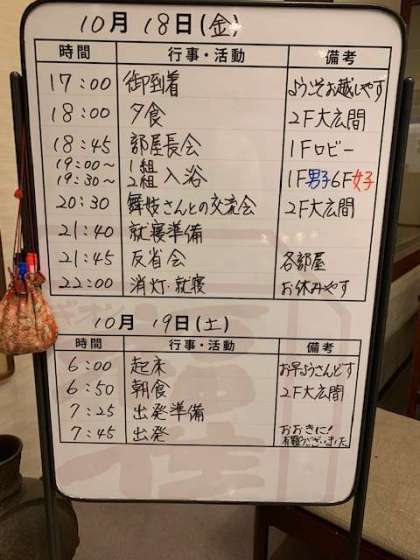 10月 18日(金)
時間 行事・活動 備考
17:00 御到着 ようこそお越しやす
18:00 夕食 2F大広間
18:45 部屋長会 1Fロビー
19:00~ 1組 入浴 1F男子6F女子
19:30~ 2組
20:30 舞妓さんとの交流会 2F大広間
21:40 就寝準備
21:45 反省会 各部屋
22:00 消灯・就寝 お休みやす
10月 19日(土)
時間 行事・活動 備考
6:00 起床 お早ようさんどす
6:50 朝食 2F大広間
7:25 出発準備
7:45 出発 おおきに!
有難うございました